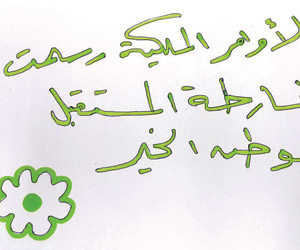 لأوامر الملكية رسمت
خارطة المستقبل
لوطن الخير